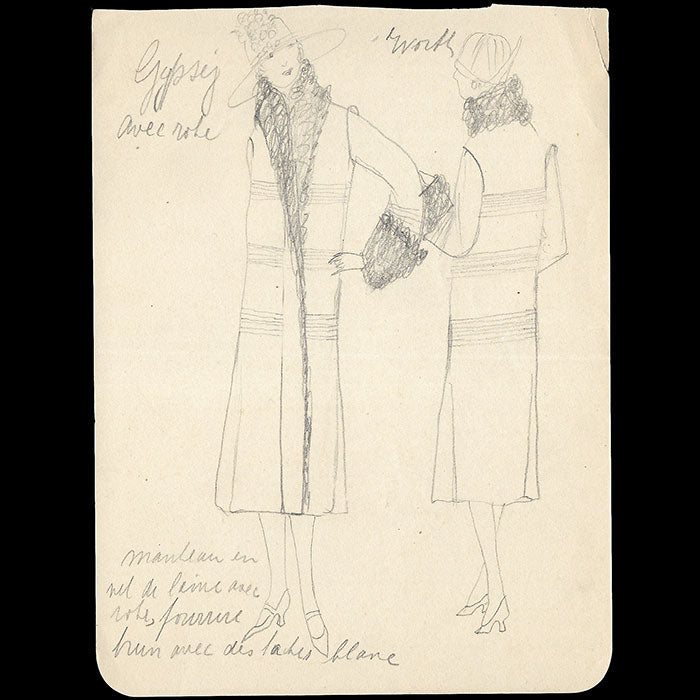 Gypsy
avec robe
Worth
manteau en
vel de laine avec
robe, fourrure
brun avec des taches blanc